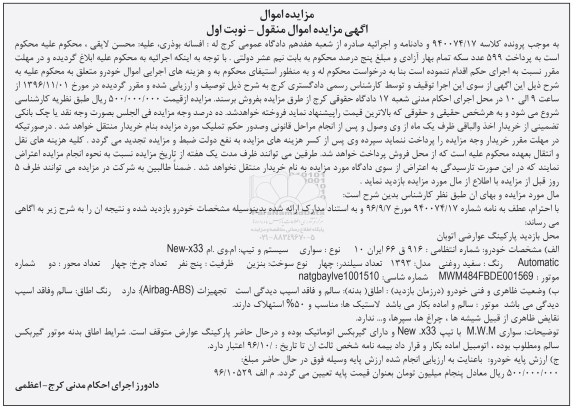 مزایده اموال
آگهی مزایده اموال منقول - نوبت اول
به موجب پرونده کلاسه ۹۴۰۰۷۴/۱۷ و دادنامه و اجرائیه صادره از شعبه هفدهم دادگاه عمومی کرج له : افسانه بوذری، علیه: محسن لایقی ، محکوم علیه محکوم
است به پرداخت ۵۹۹ عدد سکه تمام بهار آزادی و مبلغ پنج درصد محکوم به بابت نیم عشر دولتی . با توجه به اینکه اجرائیه به محکوم علیه ابلاغ گردیده و در مهلت
مقرر نسبت به اجرای حکم اقدام ننموده است بنا به درخواست محکوم له و به منظور استیفای محکوم به و هزینه های اجرایی اموال خودرو متعلق به محکوم علیه به
شرح ذیل این آگهی از سوی این اجرا توقیف و توسط کارشناس رسمی دادگستری کرج به شرح ذیل توصیف و ارزیابی شده و مقرر گردیده در مورخ ۱۳۹۶/۱۱/۰۱ از
ساعت ۹ الی ۱۰ در محل اجرای احکام مدنی شعبه ۱۷ دادگاه حقوقی کرج از طرق مزایده بفروش برسند. مزایده ازقیمت ۵۰۰/۰۰۰/۰۰۰ ریال طبق نظریه کارشناسی
شروع می شود و به هرشخص حقیقی و حقوقی که بالاترین قیمت راپیشنهاد نماید فروخته خواهدشد. ده درصد وجه مزایده فی الجلس بصورت وجه نقد یا چک بانکی
تضمینی از خریدار اخذ والباقی ظرف یک ماه از وی وصول و پس از انجام مراحل قانونی وصدور حکم تملیک مورد مزایده بنام خریدار منتقل خواهد شد . درصورتیکه
در مهلت مقرر خریدار وجه مزایده را پرداخت ننماید سپرده وی پس از کسر هزینه های مزایده به نفع دولت ضبط و مزایده تجدید می گردد . کلیه هزینه های نقل
و انتقال بعهده محکوم علیه است که از محل فروش پرداخت خواهد شد. طرفین می توانند ظرف مدت یک هفته از تاریخ مزایده نسبت به نحوه انجام مزایده اعتراض
نمایند که در این صورت تارسیدگی به اعتراض از سوی دادگاه مورد مزایده به نام خریدار منتقل نخواهد شد . ضمناً طالبین به شرکت در مزایده می توانند ظرف ۵
روز قبل از مزایده با اطلاع از مال مورد مزایده بازدید نماید .
مال مورد مزایده و بهای ان طبق نظر کارشناس بدین شرح است:
با احترام، عطف به نامه شماره ۹۴۰۰۷۴/۱۷ مورخ ۹۶/۹/۷ و به استناد مدارک ارائه شده بدینوسیله مشخصات خودرو بازدید شده و نتیجه ان را به شرح زیر به اگاهی
می رساند:
محل بازدید پارکینگ عوارضی اتوبان
الف) مشخصات خودرو: شماره انتظامی : ۹۱۶ ق ۶۶ ایران ۱۰ نوع : سواری سیستم و تیپ: ام.وی .ام New-x33
Automatic رنگ : سفید روغنی مدل: ۱۳۹۳ تعداد سیلندر: چهار نوع سوخت: بنزین ظرفیت : پنج نفر تعداد چرخ: چهار تعداد محور : دو شماره
موتور : MWM484FBDE001569 شماره شاسی: natgbaylve1001510
ب) وضعیت ظاهری و فنی خودرو (درزمان بازدید) : اطاق( بدنه): سالم و فاقد اسیب دیدگی است تجهیزات (Airbag-ABS): دارد رنگ اطاق: سالم وفاقد اسیب
دیدگی می باشد موتور : سالم و اماده بکار می باشد لاستیک ها: مناسب و ۵۰% استهلاک دارند.
نقایص ظاهری از قبیل شیشه ها ، چراغ ها، سپرها، و... ندارد.
توضیحات: سواری M.W.M با تیپ New x33 و دارای گیربکس اتوماتیک بوده و درحال حاضر پارکینگ عوارض متوقف است. شرایط اطاق بدنه موتور گیربکس
سالم ومطلوب بوده ، اتومبیل اماده بکار و قرار داد بیمه نامه شخص ثالث ان تا تاریخ : ۹۶/۱۰/ اعتبار دارد.
ج) ارزش پایه خودرو: باعنایت به ارزیابی انجام شده ارزش پایه وسیله فوق در حال حاضر مبلغ:
۵۰۰/۰۰۰/۰۰۰ ریال معادل پنجاه میلیون تومان بعنوان قیمت پایه تعیین می گردد. م الف ۹۶/۱۰۵۲۹
دادورز اجرای احکام مدنی کرج-اعظمی